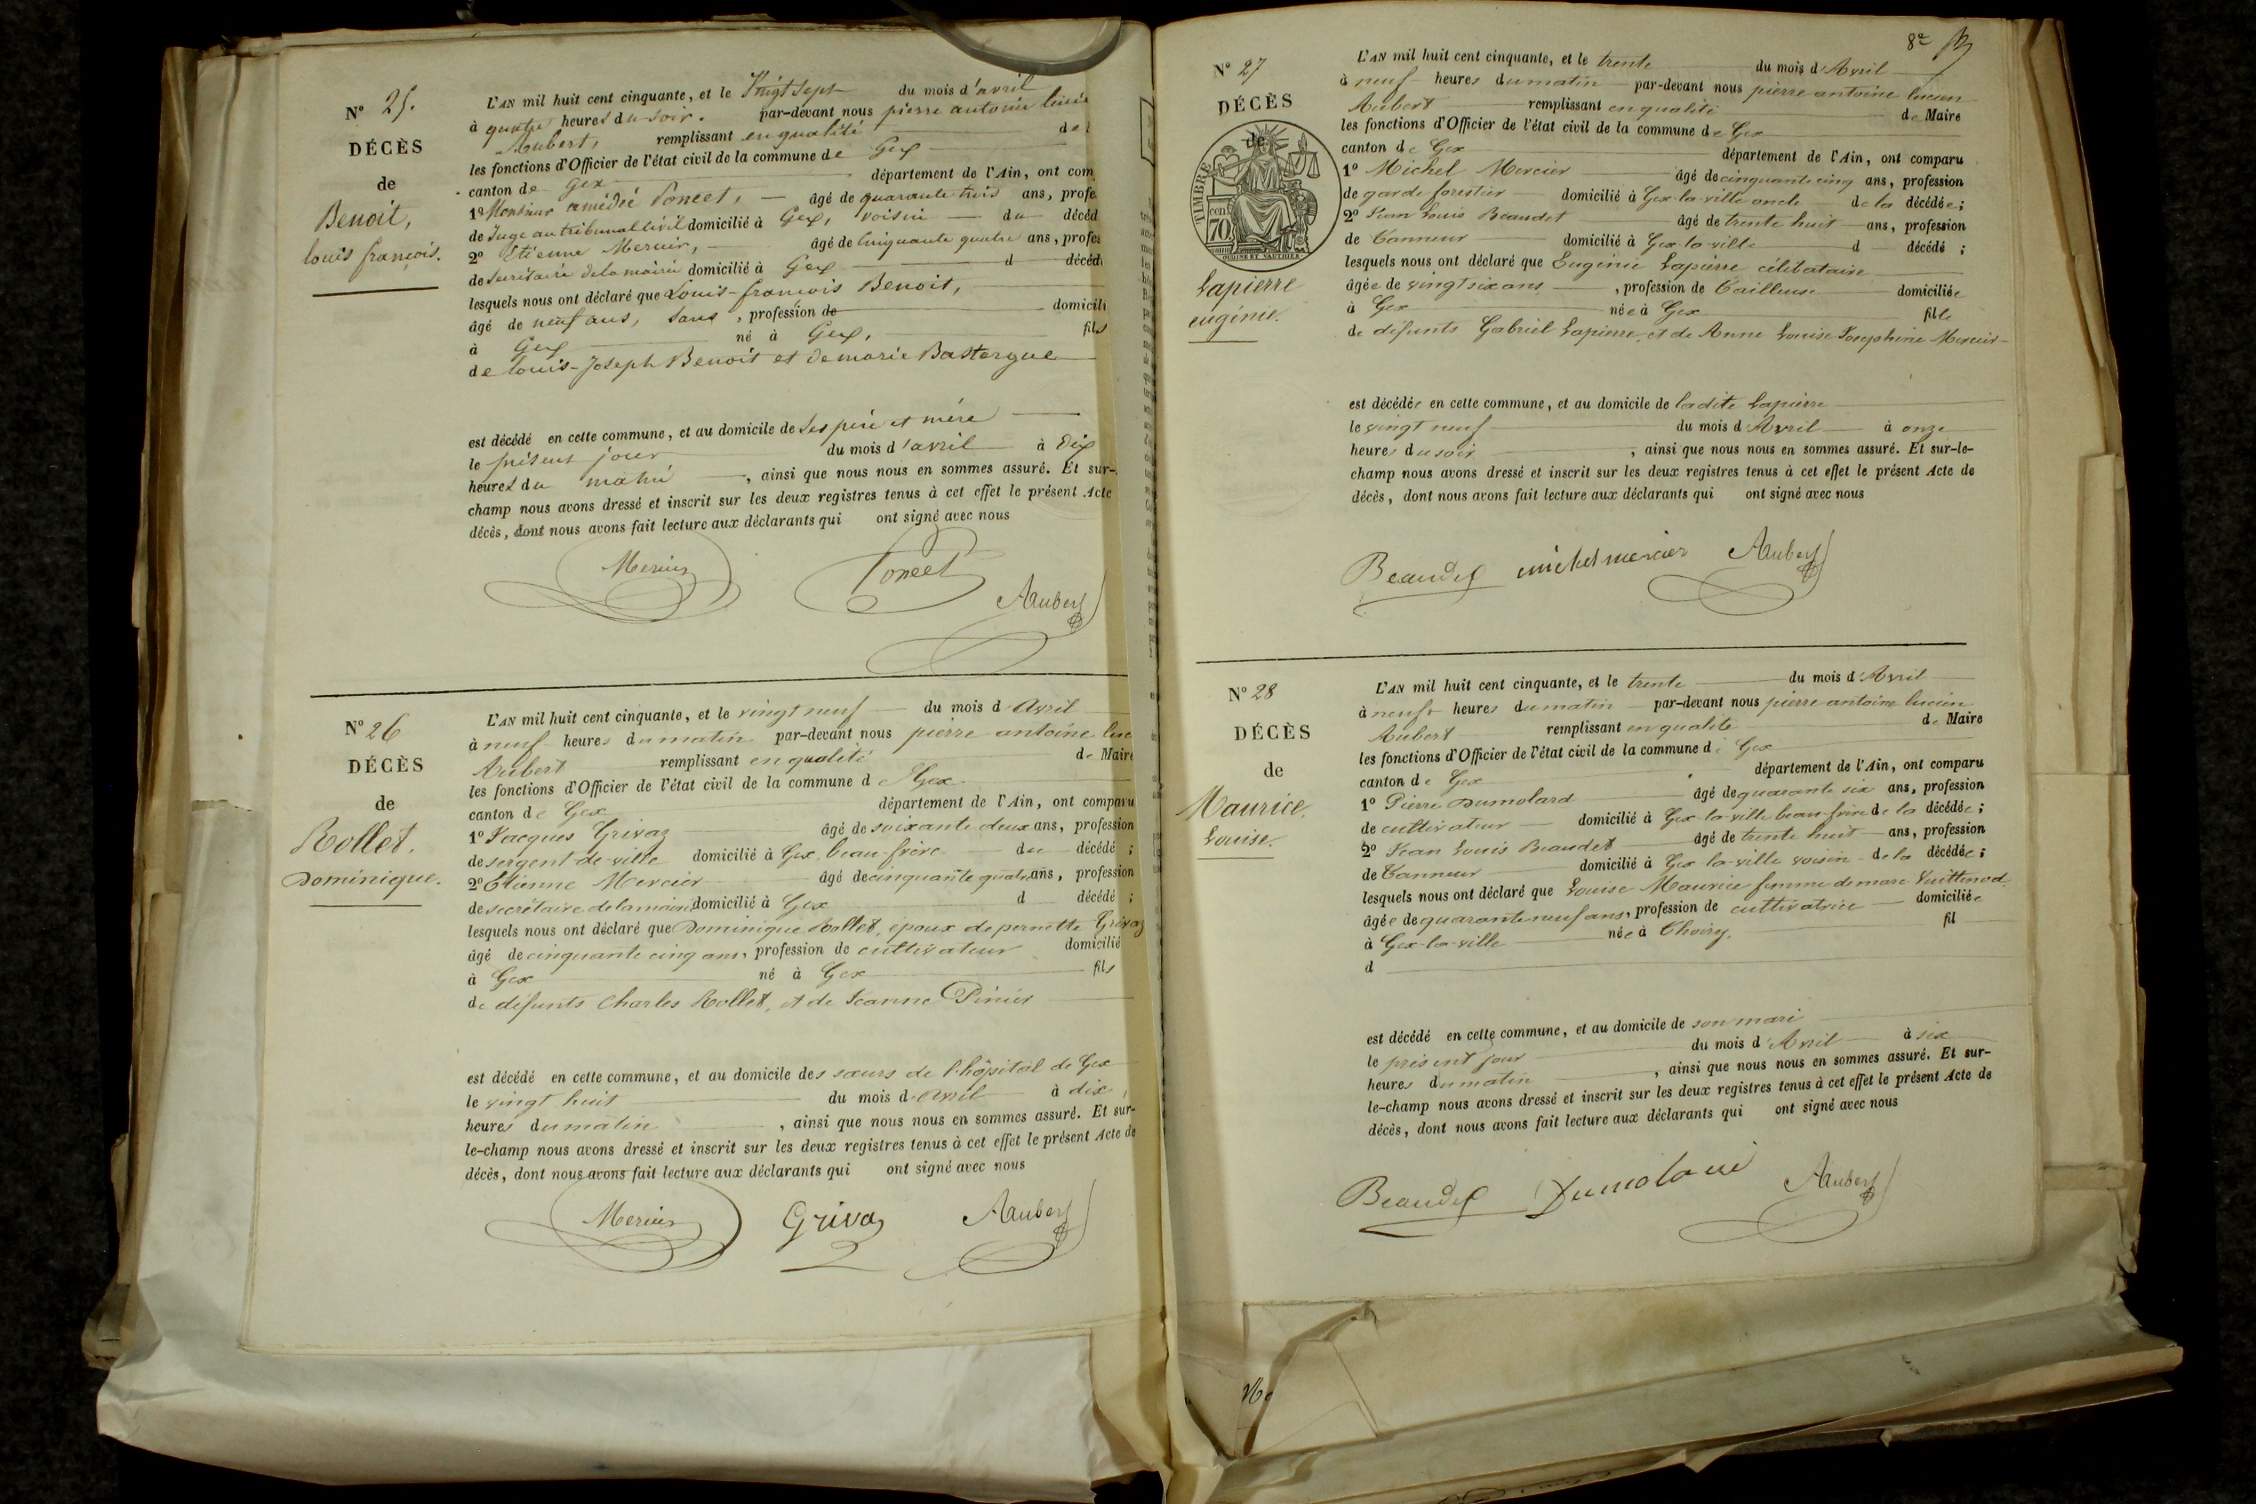 N° 25.
DÉCÈS
de
Benoit,
louis françois.
L'AN mil huit cent cinquante, et le Vingt Sept du mois d'avril
à quatre heures du soir. par-devant nous pierre antoine lucie
Aubert, remplissant en qualité de
les fonctions d'Officier de l'état civil de la commune de Gex
canton de Gex département de l'Ain, ont com
1° Monsieur amédée Poncet, âgé de quarante trois ans, profe
de Juge au tribunal Civil domicilié à Gex, voisin du décéd
2° Etienne Mercier, âgé de Cinquante quatre ans, profes
de Secrétaire de la mairie domicilié à Gex d décéd
lesquels nous ont déclaré que Louis-françois Benoit,
âgé de neuf ans, sans, profession de domicili
à Gex né à Gex, fils
de louis-Joseph Benoit et de marie Bastergue
est décédé en cette commune, et au domicile de Ses père et mère
le présent jour du mois d'avril à Dix
heures du matin, ainsi que nous nous en sommes assuré. Et sur-
champ nous avons dressé et inscrit sur les deux registres tenus à cet effet le présent Acte
décès, dont nous avons fait lecture aux déclarants qui ont signé avec nous
Mercier Poncet
Aubert
N° 26
DÉCÈS
de
Rollet.
Dominique.
L'AN mil huit cent cinquante, et le vingt neuf du mois d'Avril
à neuf heures du matin par-devant nous pierre antoine luc
Aubert remplissant en qualité de Maire
les fonctions d'Officier de l'état civil de la commune de Gex
canton de Gex département de l'Ain, ont comparu
1° Jacques Grivaz âgé de soixante deux ans, profession
de sergent de ville domicilié à Gex, beau-frère du décédé ;
2° Etienne Mercier âgé de cinquante quatre ans, profession
de secrétaire de la mairie domicilié à Gex d décédé ;
lesquels nous ont déclaré que Dominique Rollet, époux de pernette Grivaz
âgé de cinquante cinq ans, profession de cultivateur domicilié
à Gex né à Gex fils
de défunts Charles Rollet, et de Jeanne Pinier
est décédé en cette commune, et au domicile des sœurs de l'hôpital de Gex
le vingt huit du mois d'avril à dix
heures du matin, ainsi que nous nous en sommes assuré. Et sur-
le-champ nous avons dressé et inscrit sur les deux registres tenus à cet effet le présent Acte de
décès, dont nous avons fait lecture aux déclarants qui ont signé avec nous
Mercier Grivaz Aubert
8e
N° 27
DÉCÈS
de
TIMBRE
cen
70
Lapierre
eugénie.
L'AN mil huit cent cinquante, et le trente du mois d'Avril
à neuf heures du matin par-devant nous pierre antoine lucien
Aubert remplissant en qualité de Maire
les fonctions d'Officier de l'état civil de la commune de Gex
canton de Gex département de l'Ain, ont comparu
1° Michel Mercier âgé de cinquante cinq ans, profession
de garde forestier domicilié à Gex-la-ville oncle de la décédée ;
2° Jean Louis Beaudet âgé de trente huit ans, profession
de Tanneur domicilié à Gex-la-ville d décédé ;
lesquels nous ont déclaré que Eugénie Lapierre célibataire
âgée de vingt six ans, profession de Tailleuse domiciliée
à Gex née à Gex fille
de défunts Gabriel Lapierre, et de Anne Louise Josephine Mercier
est décédée en cette commune, et au domicile de la dite Lapierre
le vingt neuf du mois d'Avril à onze
heures du soir, ainsi que nous nous en sommes assuré. Et sur-le-
champ nous avons dressé et inscrit sur les deux registres tenus à cet effet le présent Acte de
décès, dont nous avons fait lecture aux déclarants qui ont signé avec nous
Beaudet michel mercier Aubert
N° 28
DÉCÈS
de
Maurice.
Louise.
L'AN mil huit cent cinquante, et le trente du mois d'Avril
à neuf heures du matin par-devant nous pierre antoine lucien
Aubert remplissant en qualité de Maire
les fonctions d'Officier de l'état civil de la commune de Gex
canton de Gex département de l'Ain, ont comparu
1° Pierre Dumolard âgé de quarante six ans, profession
de cultivateur domicilié à Gex-la-ville beau-frère de la décédée ;
2° Jean Louis Beaudet âgé de trente huit ans, profession
de Tanneur domicilié à Gex-la-ville voisin de la décédée ;
lesquels nous ont déclaré que Louise Maurice femme de marc Vuittenod
âgée de quarante neuf ans, profession de cultivatrice domiciliée
à Gex-la-ville née à Thoiry. fil
d
est décédé en cette commune, et au domicile de son mari
le présent jour du mois d'Avril à six
heures du matin, ainsi que nous nous en sommes assuré. Et sur-
le-champ nous avons dressé et inscrit sur les deux registres tenus à cet effet le présent Acte de
décès, dont nous avons fait lecture aux déclarants qui ont signé avec nous
Beaudet Dumolard Aubert